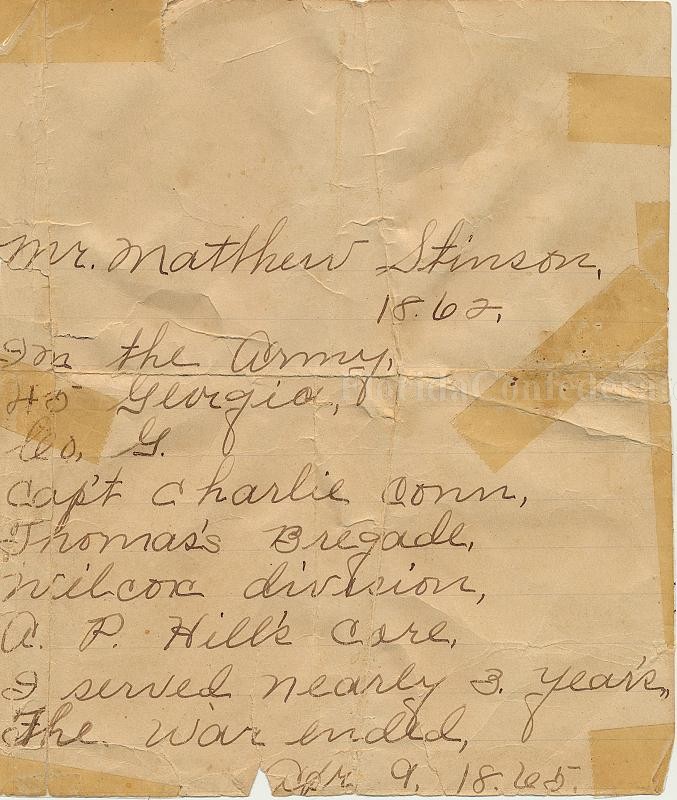 Mr. Matthew Stinson,
18.62,
In the Army,
45 Georgia,
Co, G.
Cap't Charlie Conn,
Thomas's Bregade,
Wilcox division,
A. P. Hill's Core,
I served nearly 3. year's,
The war ended,
Apr. 9, 18.65.